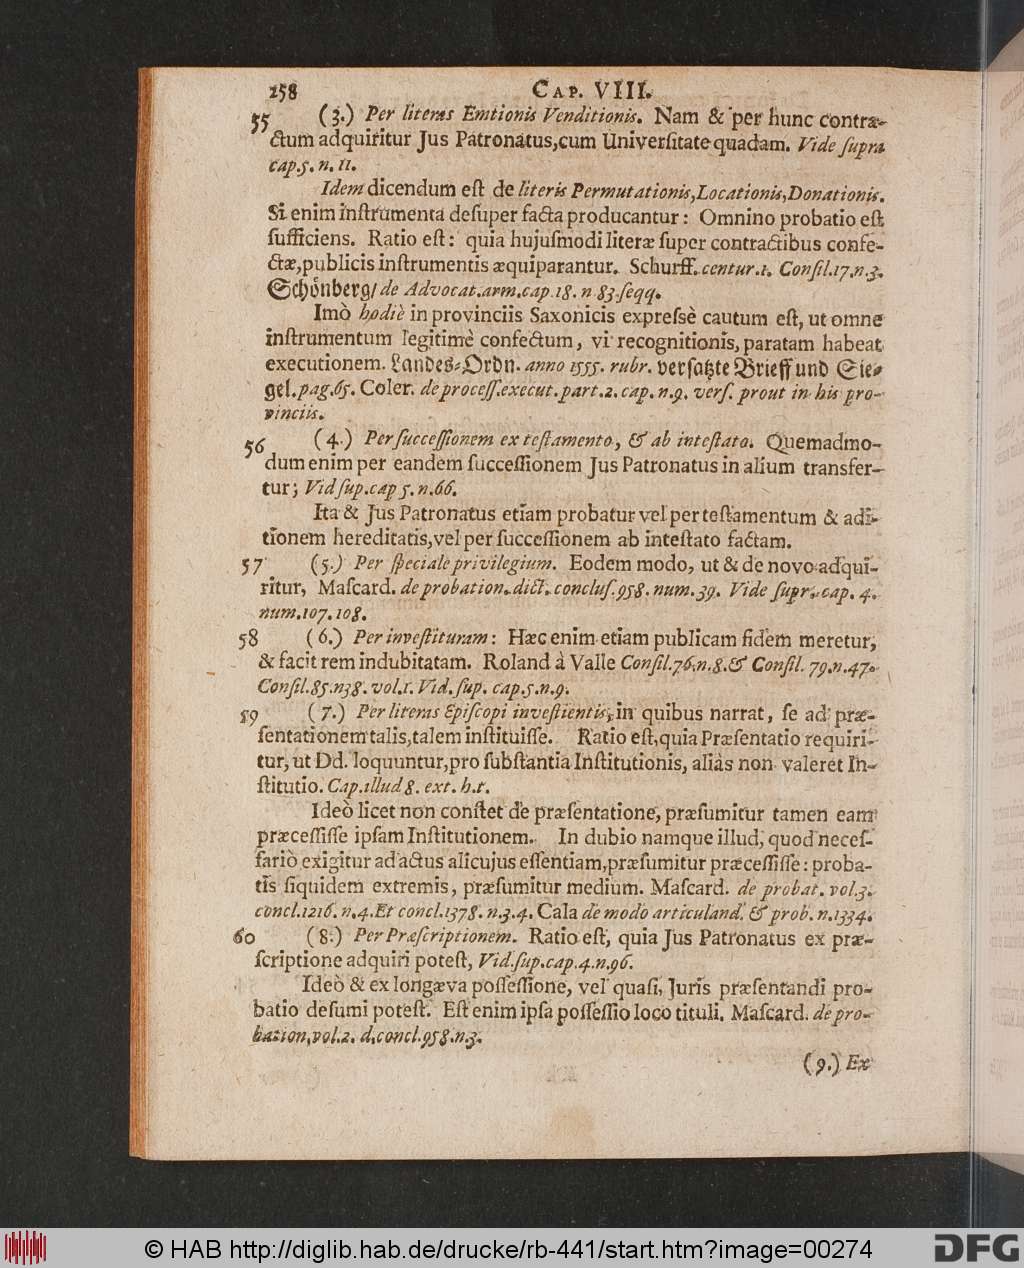 258 CAP. VIII.
55 (3.) Per literas Emtionis Venditionis. Nam & per hunc contra-
ctum adquiritur Jus Patronatus,cum Univerſitate quadam. Vide ſupra
cap.5. n. 11.
Idem dicendum eſt de literis Permutationis,Locationis,Donationis.
Si enim inſtrumenta deſuper facta producantur: Omnino probatio eſt
ſufficiens. Ratio eſt: quia hujuſmodi literæ ſuper contractibus confe-
ctæ,publicis inſtrumentis æquiparantur. Schurff. centur.1. Conſil.17.n.3.
Schönberg/ de Advocat.arm.cap.18. n 83.ſeqq.
Imò hodiè in provinciis Saxonicis expreſsè cautum eſt, ut omne
inſtrumentum legitimè confectum, vi recognitionis, paratam habeat
executionem. Landes-Ordn. anno 1555. rubr. verſatzte Brieff und Sie-
gel. pag.65. Coler. de proceſſ.execut.part.2. cap. n.9. verſ. prout in his pro-
vinciis.
56 (4.) Per ſucceſſionem ex teſtamento, & ab inteſtato. Quemadmo-
dum enim per eandem ſucceſſionem Jus Patronatus in alium transfer-
tur; Vid ſup.cap 5. n.66.
Ita & Jus Patronatus etiam probatur vel per teſtamentum & adi-
tionem hereditatis,vel per ſucceſſionem ab inteſtato factam.
57 (5.) Per ſpeciale privilegium. Eodem modo, ut & de novo adqui-
ritur, Maſcard. de probation. dict. concluſ.958. num.39. Vide ſupr. cap. 4.
num.107. 108.
58 (6.) Per inveſtituram: Hæc enim etiam publicam fidem meretur,
& facit rem indubitatam. Roland à Valle Conſil.76.n.8.& Conſil. 79.n.47.
Conſil.85.n38. vol.1. Vid. ſup. cap.5.n.9.
59 (7.) Per literas Epiſcopi inveſtientis, in quibus narrat, ſe ad præ-
ſentationem talis,talem inſtituiſſe. Ratio eſt,quia Præſentatio requiri-
tur, ut Dd. loquuntur,pro ſubſtantia Inſtitutionis, aliàs non valeret In-
ſtitutio. Cap.illud 8. ext. h.t.
Ideò licet non conſtet de præſentatione, præſumitur tamen eam
præceſſiſſe ipſam Inſtitutionem. In dubio namque illud, quod neceſ-
ſariò exigitur ad actus alicujus eſſentiam,præſumitur præceſſiſſe: proba-
tis ſiquidem extremis, præſumitur medium. Maſcard. de probat. vol.3.
concl.1216. n.4.Et concl.1378. n.3.4. Cala de modo articuland. & prob. n.1334.
60 (8.) Per Præſcriptionem. Ratio eſt, quia Jus Patronatus ex præ-
ſcriptione adquiri poteſt, Vid.ſup.cap.4.n.96.
Ideò & ex longæva poſſeſſione, vel quaſi, Juris præſentandi pro-
batio deſumi poteſt. Eſt enim ipſa poſſeſſio loco tituli. Maſcard. de pro-
bation,vol.2. d.concl.958.n.3.
(9.) Ex
© HAB http://diglib.hab.de/drucke/rb-441/start.htm?image=00274
DFG